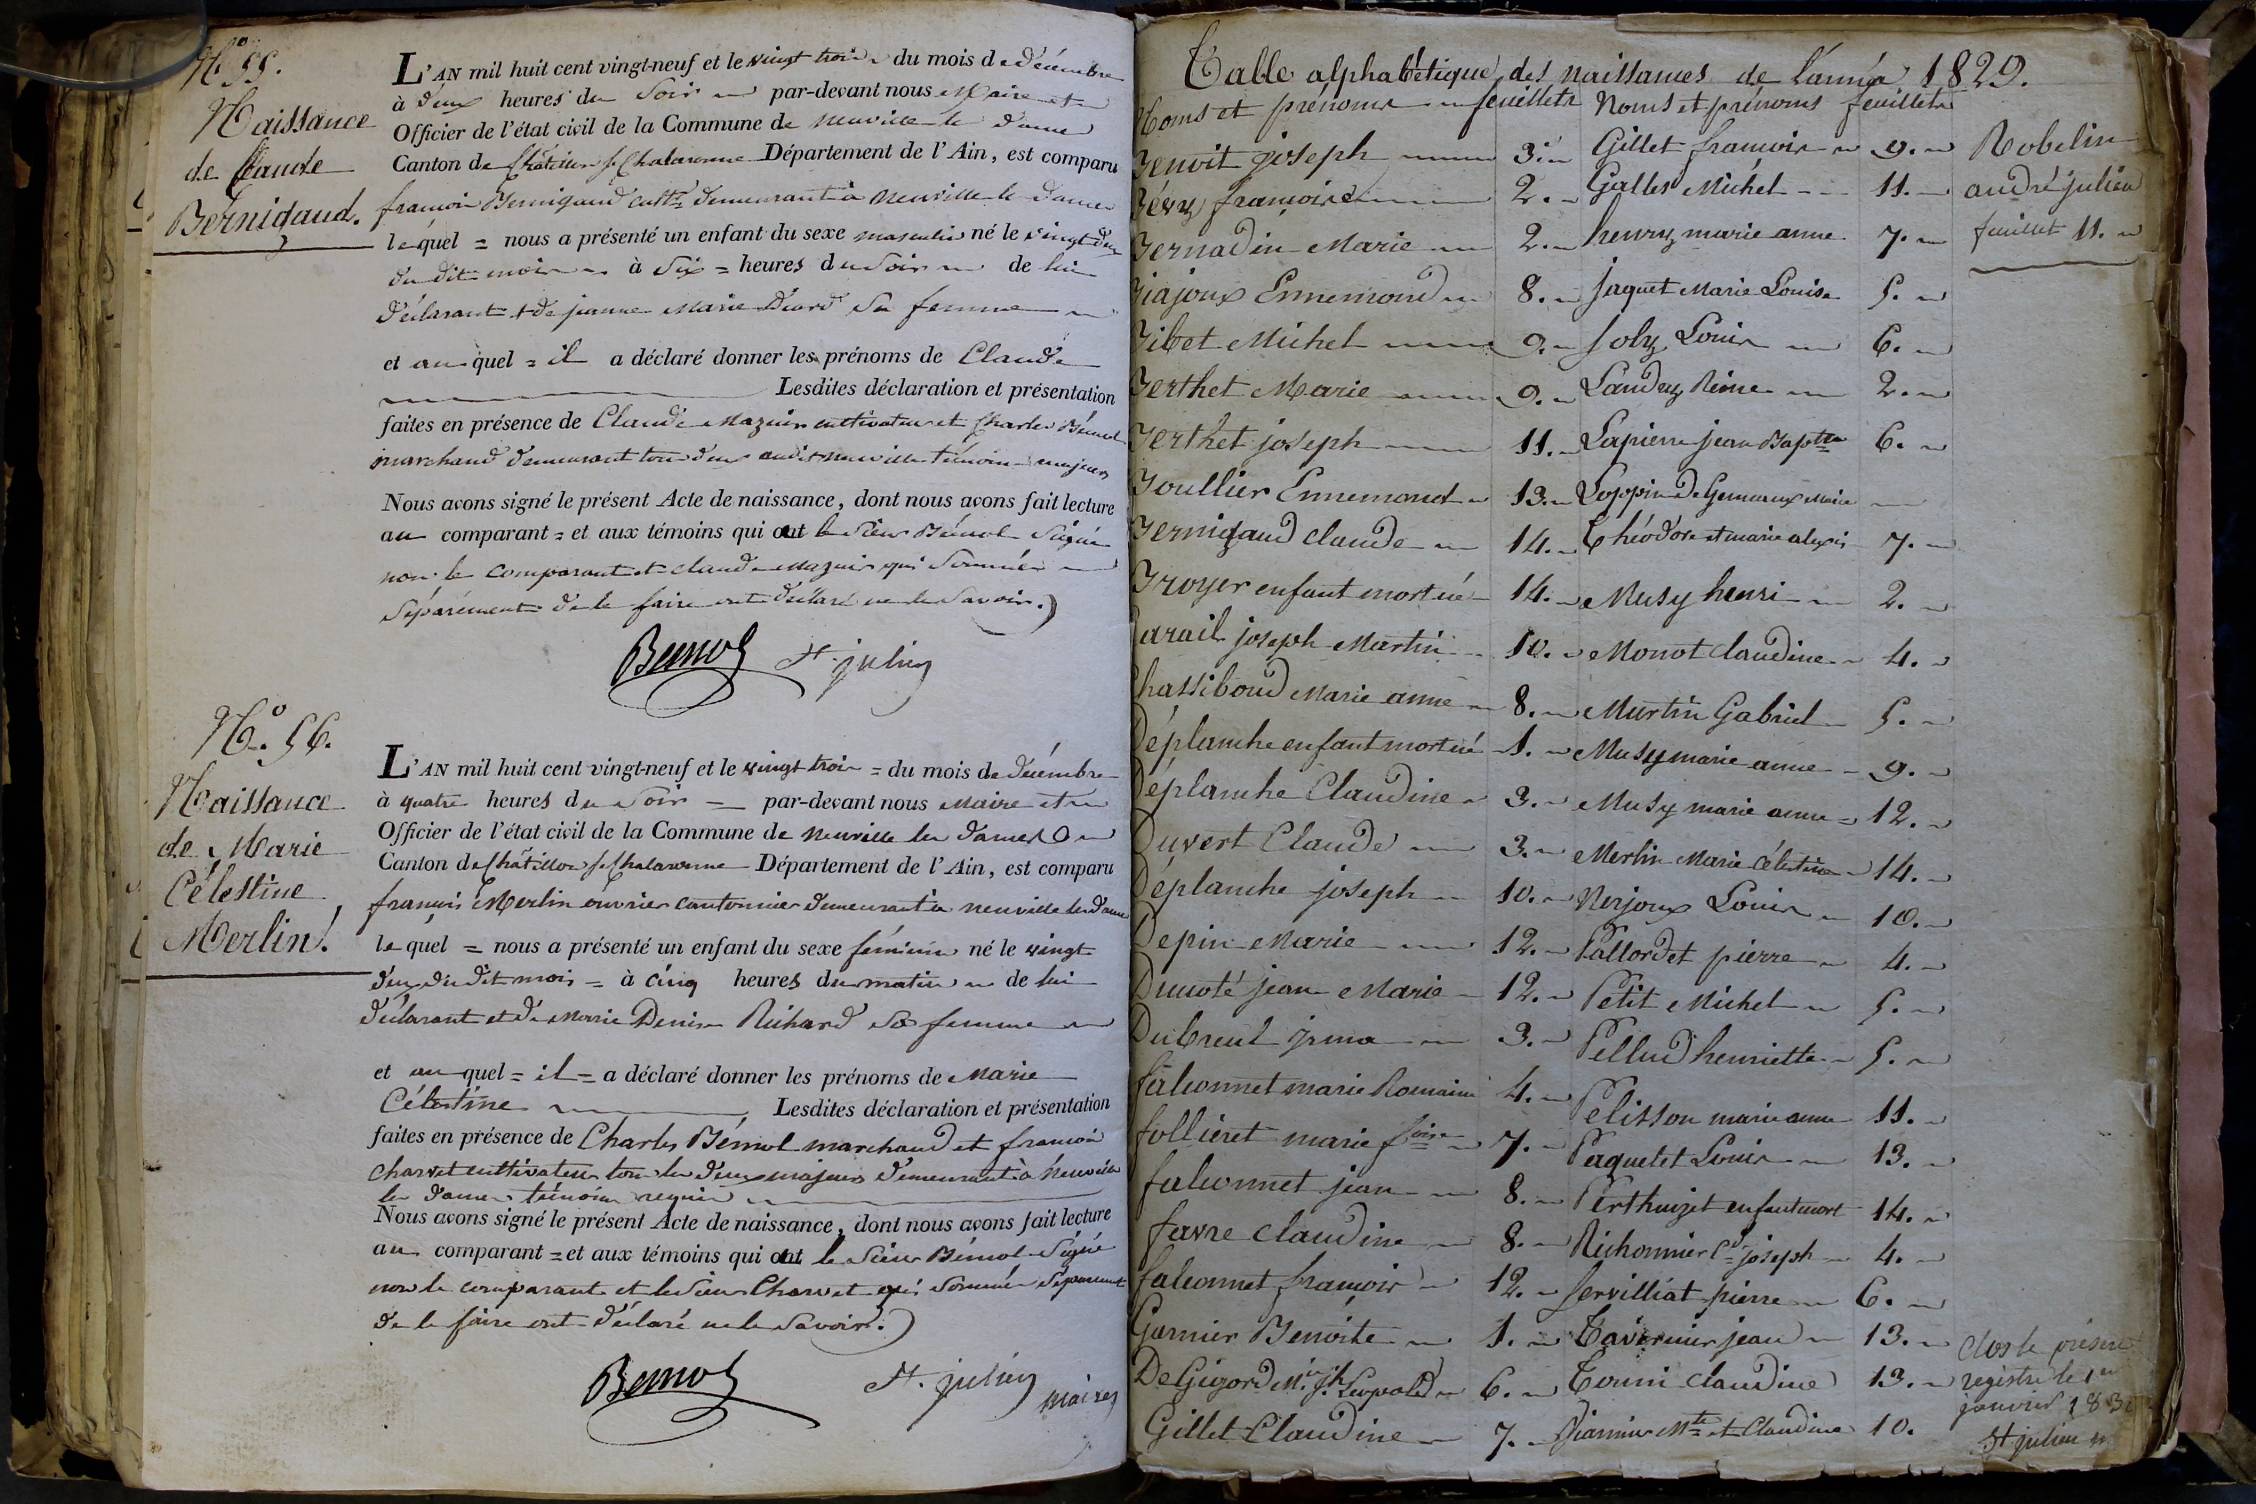 N.° 55.
Naissance
de Claude
Bernigaud.
L'AN mil huit cent vingt-neuf et le vingt trois du mois de décembre
à deux heures du soir par-devant nous Maire et
Officier de l'état civil de la Commune de neuville les dames
Canton de Châtillon s. Chalaronne Département de l'Ain, est comparu
françois Bernigaud cult.r demeurant à neuville les dames
lequel = nous a présenté un enfant du sexe masculin né le vingt deux
du dit mois à six = heures du soir de lui
déclarant et de jeanne Marie sa femme
et auquel = il a déclaré donner les prénoms de Claude
Lesdites déclaration et présentation
faites en présence de Claude Mazuir cultivateur et Charles Bémol
marchand demeurant tous deux audit neuville témoins majeurs
Nous avons signé le présent Acte de naissance, dont nous avons fait lecture
au comparant = et aux témoins qui ont le sieur Bémol signé
non le comparant et claude Mazuir qui sommés
séparément de le faire ont déclaré ne le savoir.
Bemol St. julien
N.° 56.
Naissance
de Marie
Célestine
Merlin.
L'AN mil huit cent vingt-neuf et le vingt trois = du mois de décembre
à quatre heures du soir par-devant nous Maire et
Officier de l'état civil de la Commune de neuville les dames
Canton de Châtillon s. Chalaronne Département de l'Ain, est comparu
françois Merlin ouvrier cantonnier demeurant à neuville les dames
lequel = nous a présenté un enfant du sexe féminin né le vingt
deux du dit mois = à cinq heures du matin de lui
déclarant et de Marie Denise Richard sa femme
et auquel = il = a déclaré donner les prénoms de Marie
Célestine Lesdites déclaration et présentation
faites en présence de Charles Bémol marchand et françois
charvet cultivateur tous les deux majeurs demeurant à neuville
les dames témoins requis
Nous avons signé le présent Acte de naissance, dont nous avons fait lecture
au comparant = et aux témoins qui ont le sieur Bémol signé
non le comparant et le sieur Charvet qui sommés séparément
de le faire ont déclaré ne le savoir.
Bemol St. julien
maire
Table alphabétique des naissances de l'année 1829.
Noms et prénoms feuillets Noms et prénoms feuillets
Benoit joseph 3. Gillet françois 9. Robelin
Bévy françoise 2. Galles Michel 11. andré julien
Bernadin Marie 2. henry marie anne 7. feuillet 11.
Biajoux Ennemond 8. jaquet Marie Louise 5.
Bibet Michel 9. Joly Louis 6.
Berthet Marie 9. Landry Reine 2.
Berthet joseph 11. Lapierre jean Bapt.te 6.
Boullier Ennemond 13. De Marie
Bernigaud claude 14. Théodore et marie alexis 7.
Broyer enfant mort né 14. Musy henri 2.
Carail joseph Martin 10. Monot claudine 4.
Chassiboud Marie anne 8. Martin Gabriel 5.
Déplanche enfant mort né 1. Musy marie anne 9.
Déplanche Claudine 3. Musy marie anne 12.
Duvert Claude 3. Merlin Marie Célestine 14.
Déplanche joseph 10. Nerjoux Louis 10.
Depin Marie 12. Pallordet pierre 4.
Ducoté jean Marie 12. Petit Michel 5.
Dubreul jrma 3. Pellud henriette 5.
falconnet marie Romaine 4. Pelisson marie anne 11.
follieret marie f.oise 7. Paquelet Louis 13.
falconnet jean 8. Perthuizet enfant mort 14.
favre claudine 8. Richonnier C.d joseph 4.
falconnet françois 12. Servilliat pierre 6.
Garnier Benoite 1. Tavernier jean 13. Clos le présent
De Gigord M.ie j.h Leopold 6. Tonin claudine 13. registre le 1er
janvier 1830
Gillet Claudine 7. M.te et Claudine 10. St julien